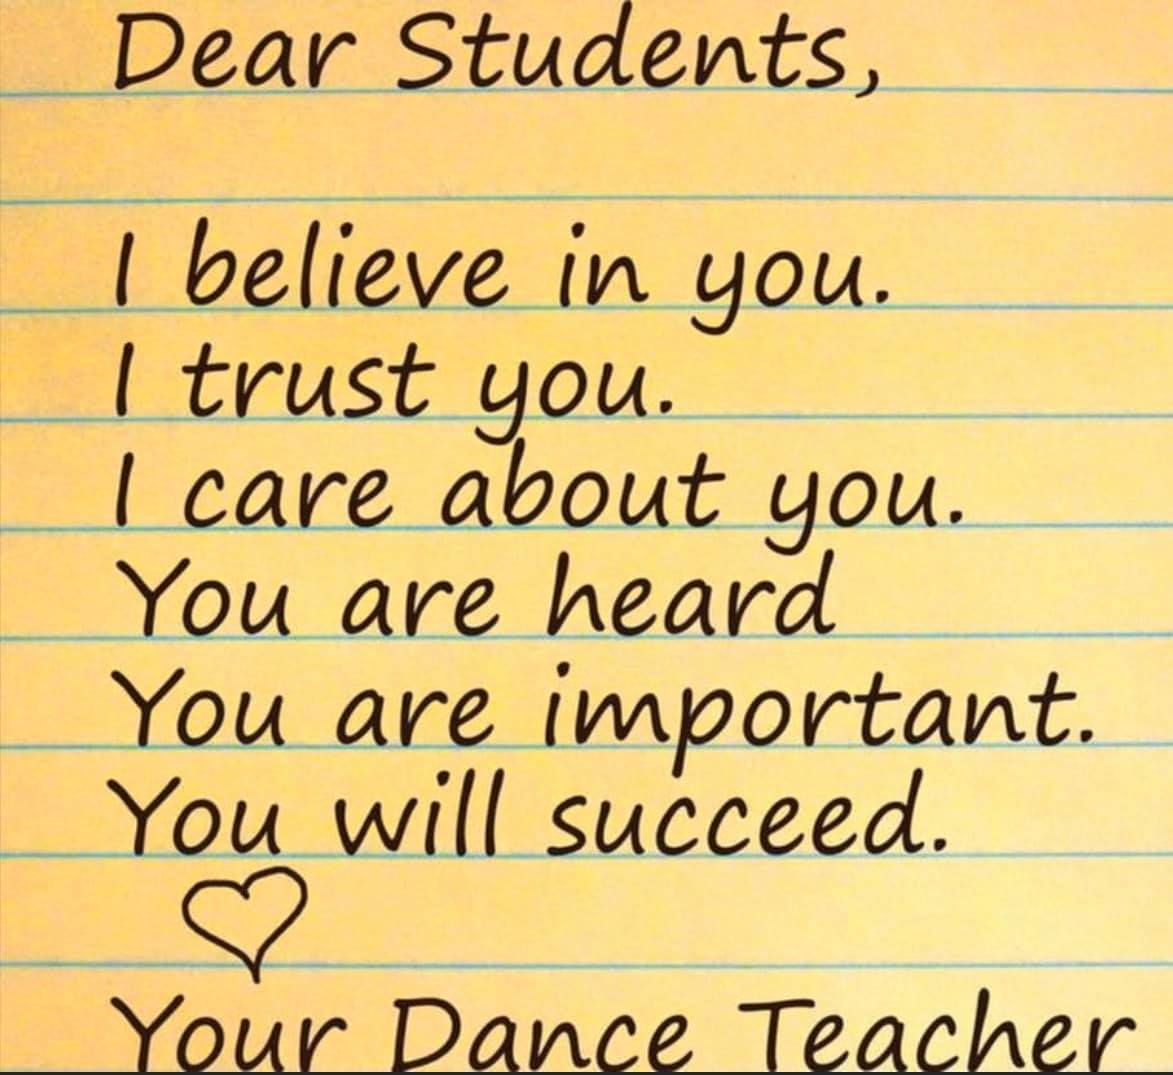 Dear Students,
I believe in you.
I trust you.
I care about you.
You are heard
You are important.
You will succeed.
Your Dance Teacher